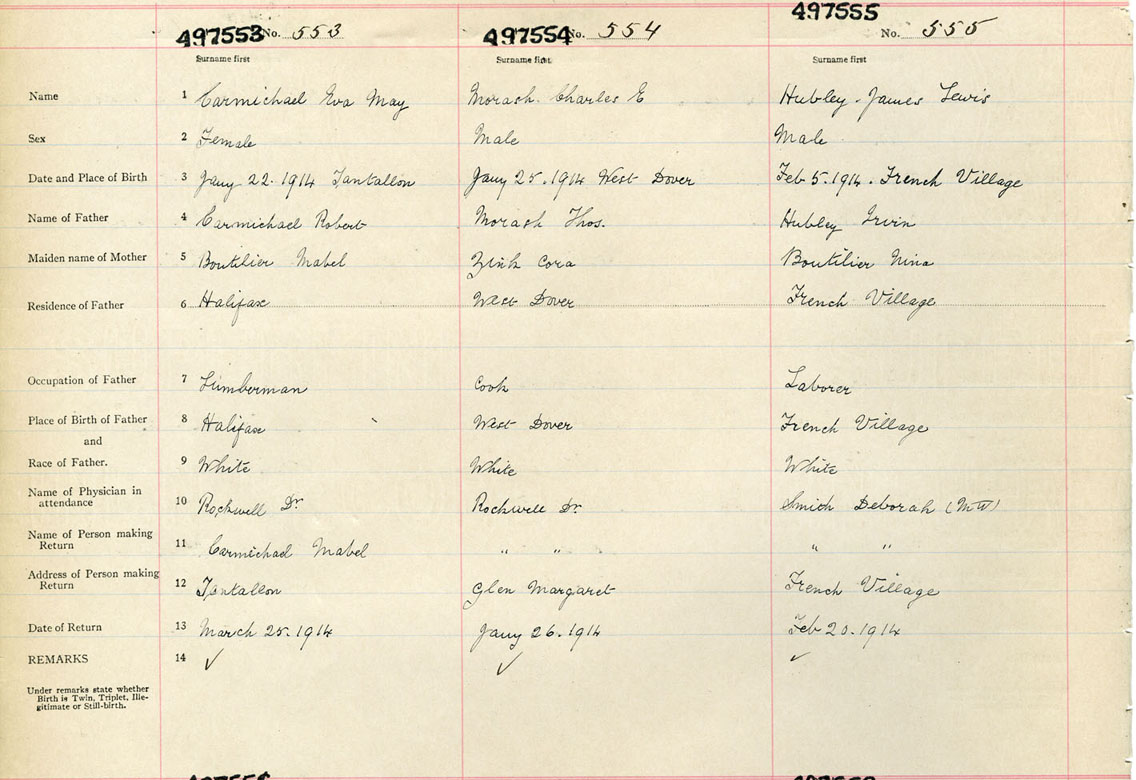 497553 No. 553 497554 No. 554 497555 No. 555
Surname first Surname first Surname first
Name 1 Carmichael Eva May Morash Charles E Hubley James Lewis
Sex 2 Female Male Male
Date and Place of Birth 3 Jany 22. 1914 Tantallon Jany 25. 1914 West Dover Feb 5. 1914. French Village
Name of Father 4 Carmichael Robert Morash Thos. Hubley Irvin
Maiden name of Mother 5 Boutilier Mabel Zink Cora Boutilier Nina
Residence of Father 6 Halifax West Dover French Village
Occupation of Father 7 Lumberman Cook Laborer
Place of Birth of Father 8 Halifax West Dover French Village
and
Race of Father. 9 White White White
Name of Physician in
attendance 10 Rockwell Dr Rockwell Dr Smith Deborah (MW)
Name of Person making
Return 11 Carmichael Mabel " " " "
Address of Person making
Return 12 Tantallon Glen Margaret French Village
Date of Return 13 March 25. 1914 Jany 26. 1914 Feb 20. 1914
REMARKS 14 ✓ ✓ ✓
Under remarks state whether
Birth is Twin, Triplet, Ille-
gitimate or Still-birth.